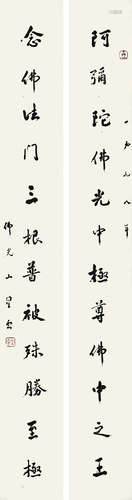 阿彌陀佛光中極尊佛中之王
一九九八年
念佛法門三根普被殊勝至極
佛光山星雲